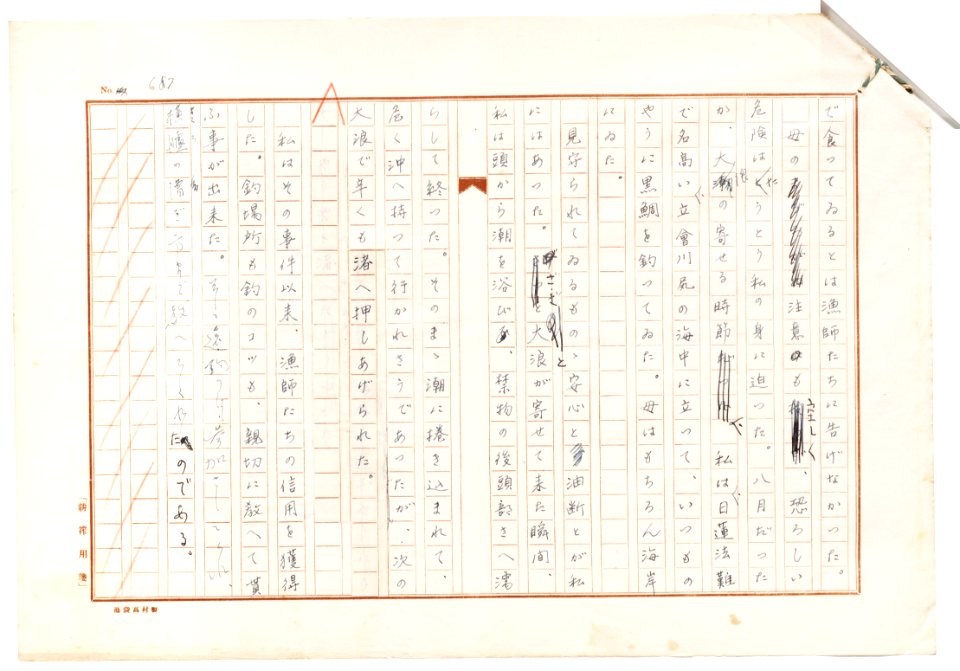 No. 687
で食ってゐるとは漁師たちに告げなかった。
母の注意も空しく、恐ろしい
危険はとうとう私の身に迫った。八月だった
が、大浪の寄せる時節で、私は日蓮法難
で名高い立會川尻の海中に立って、いつもの
やうに黒鯛を釣ってゐた。母はもちろん海岸
にゐた。
見守られてゐるものゝ安心と油断とが私
にはあった。と大浪が寄せて来た瞬間、
私は頭から潮を浴び、禁物の後頭部さへ濡
らして終った。そのまゝ潮に捲き込まれて、
危く沖へ持って行かれさうであったが、次の
大浪で辛くも渚へ押しあげられた。
私はその事件以来、漁師たちの信用を獲得
した。釣場所も釣のコツも、親切に教へて貰
ふ事が出来た。遠釣りに参加
のである。